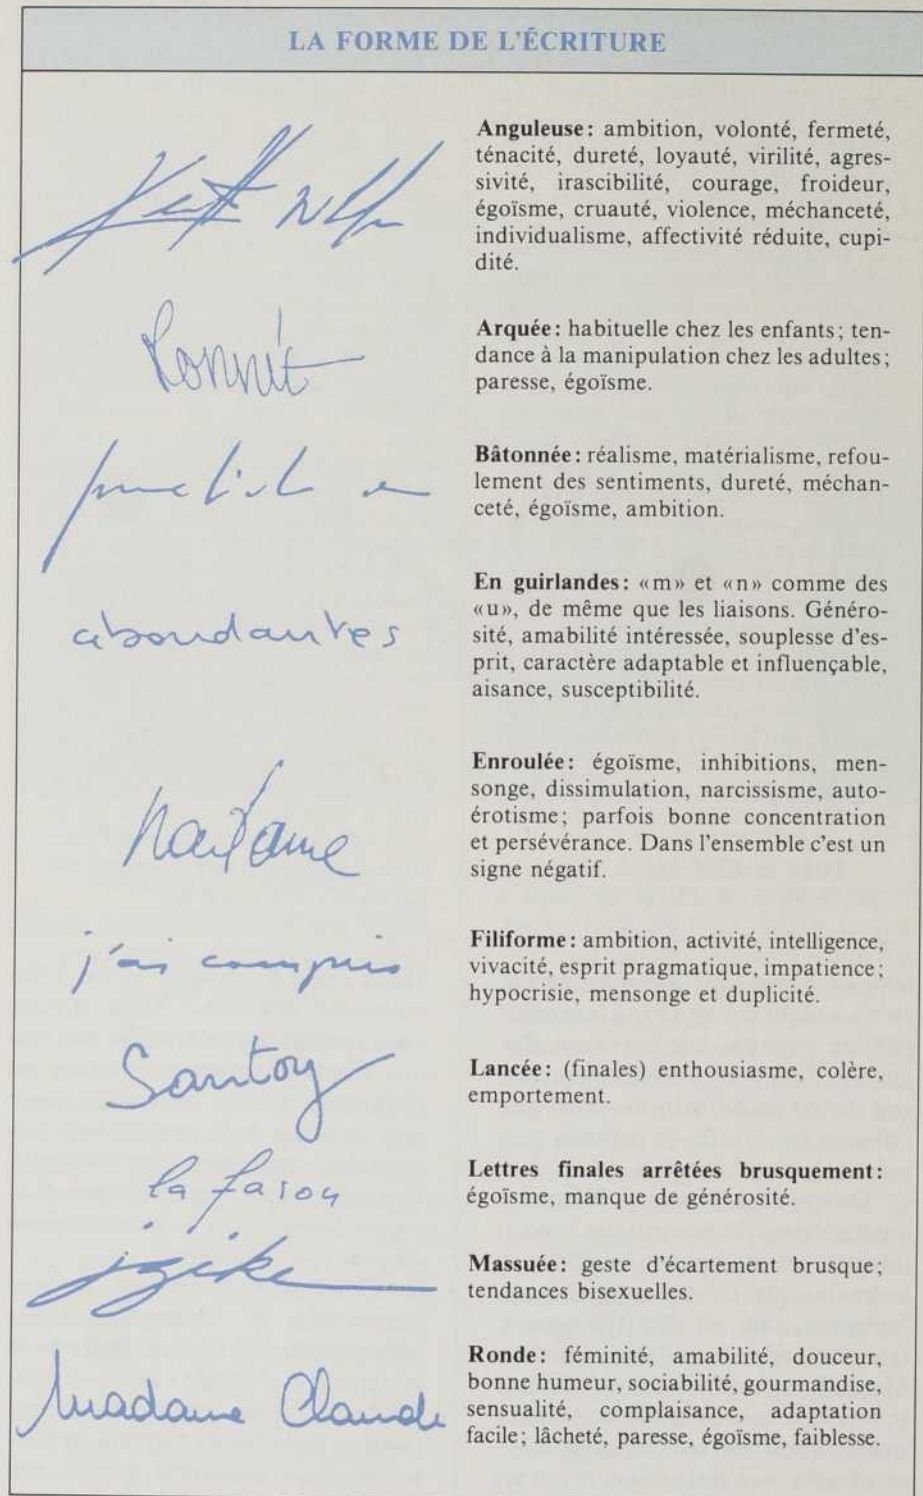 LA FORME DE L'ÉCRITURE
Anguleuse: ambition, volonté, fermeté,
ténacité, dureté, loyauté, virilité, agres-
sivité, irascibilité, courage, froideur,
égoïsme, cruauté, violence, méchanceté,
individualisme, affectivité réduite, cupi-
dité.
Arquée: habituelle chez les enfants; ten-
dance à la manipulation chez les adultes;
paresse, égoïsme.
Bâtonnée: réalisme, matérialisme, refou-
lement des sentiments, dureté, méchan-
ceté, égoïsme, ambition.
abondantes
En guirlandes: «m» et «n» comme des
«u», de même que les liaisons. Généro-
sité, amabilité intéressée, souplesse d'es-
prit, caractère adaptable et influençable,
aisance, susceptibilité.
Enroulée: égoïsme, inhibitions, men-
songe, dissimulation, narcissisme, auto-
érotisme; parfois bonne concentration
et persévérance. Dans l'ensemble c'est un
signe négatif.
j'ai compris
Filiforme: ambition, activité, intelligence,
vivacité, esprit pragmatique, impatience;
hypocrisie, mensonge et duplicité.
Santoy
Lancée: (finales) enthousiasme, colère,
emportement.
la fason
Lettres finales arrêtées brusquement:
égoïsme, manque de générosité.
Massuée: geste d'écartement brusque;
tendances bisexuelles.
Madame Claude
Ronde: féminité, amabilité, douceur,
bonne humeur, sociabilité, gourmandise,
sensualité, complaisance, adaptation
facile; lâcheté, paresse, égoïsme, faiblesse.